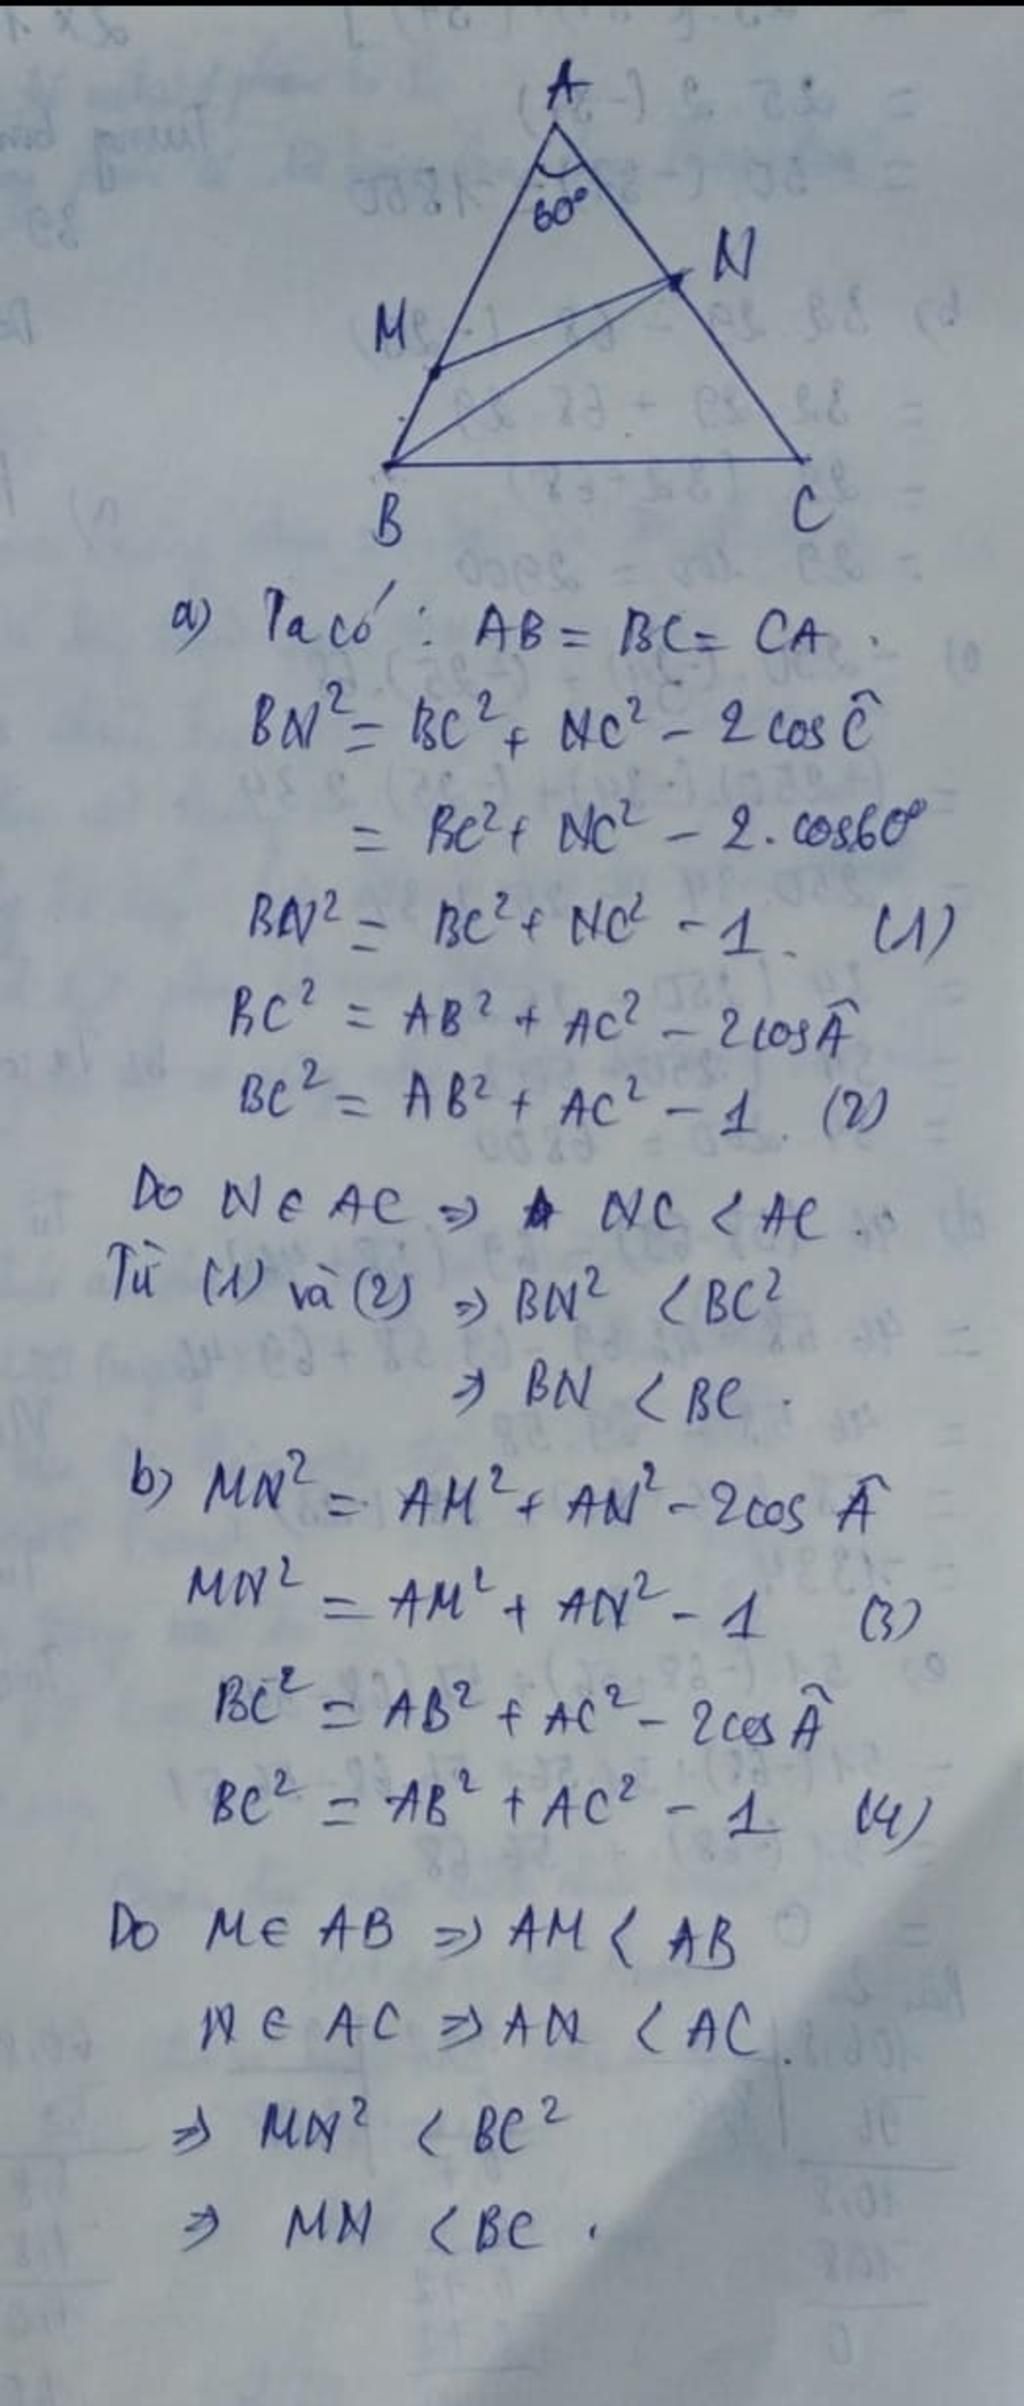 A
60°
N
M
B
C
a) Ta có : AB = BC = CA .
BN² = BC² + NC² - 2 cos Ĉ
= BC² + NC² - 2. cos60°
BN² = BC² + NC² - 1. (1)
BC² = AB² + AC² - 2cos Â
BC² = AB² + AC² - 1. (2)
Do N ∈ AC ⇒ NC < AC .
Từ (1) và (2) ⇒ BN² < BC²
⇒ BN < BC .
b) MN² = AM² + AN² - 2cos Â
MN² = AM² + AN² - 1 (3)
BC² = AB² + AC² - 2cos Â
BC² = AB² + AC² - 1 (4)
Do M ∈ AB ⇒ AM < AB
N ∈ AC ⇒ AN < AC.
⇒ MN² < BC²
⇒ MN < BC .